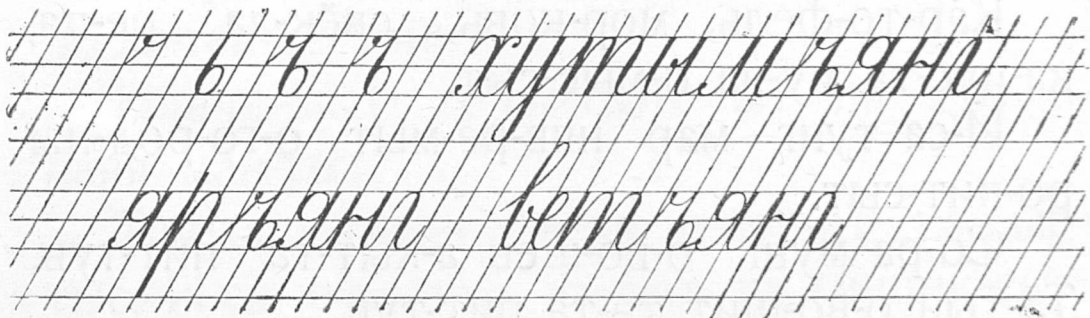 ъ ъ ъ хутымъянг
яръянг ветъянг